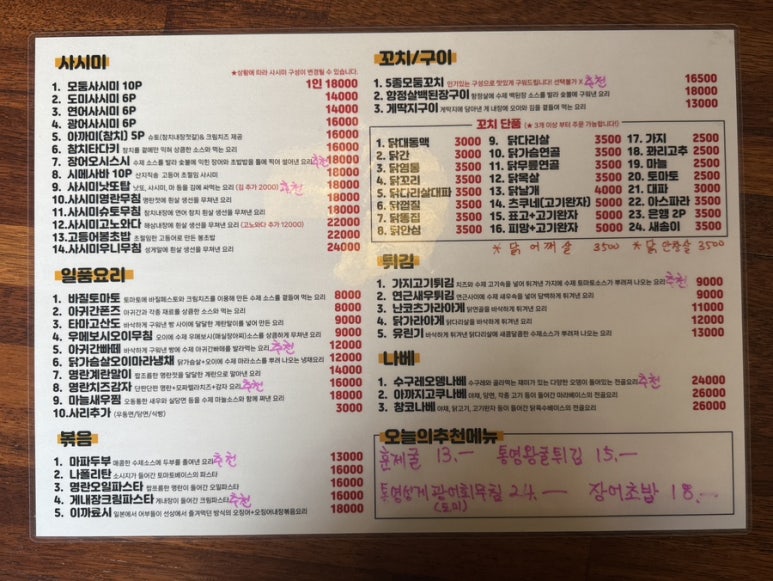 사시미
★상황에 따라 사시미 구성이 변경될 수 있습니다.
1. 모둠사시미 10P 1인 18000
2. 도미사시미 6P 14000
3. 연어사시미 6P 14000
4. 광어사시미 6P 16000
5. 아까미(참치) 5P 슈토(참치내장젓갈)& 크림치즈 제공 16000
6. 참치타다키 참치를 겉에만 익혀 상큼한 소스와 먹는 요리 16000
7. 장어오시스시 수제 소스를 발라 숯불에 익힌 장어와 초밥밥을 틀에 찍어 썰어낸 요리 추천 18000
8. 시메사바 10P 산지직송 고등어 초절임 사시미 18000
9. 사시미낫토탑 낫또, 사시미, 마 등을 김에 싸먹는 요리 (김 추가 2000) 추천 16000
10.사시미명란무침 명란젓에 흰살 생선을 무쳐낸 요리 18000
11.사시미슈토무침 참치내장에 연어 참치 흰살 생선을 무쳐낸 요리 18000
12.사시미고노와다 해삼내장에 흰살 생선을 무쳐낸 요리 (고노와다 추가 12000) 22000
13.고등어봉초밥 초절임한 고등어로 만든 봉초밥 22000
14.사시미우니무침 성게알에 흰살 생선을 무쳐낸 요리 24000
일품요리
1. 바질토마토 토마토에 바질페스토와 크림치즈를 이용해 만든 수제 소스를 곁들여 먹는 요리 8000
2. 아귀간폰즈 아귀간과 각종 재료를 상큼한 소스와 먹는 요리 9000
3. 타마고산도 바삭하게 구워낸 빵 사이에 달달한 계란말이를 넣어 만든 요리 9000
4. 우메보시오이무침 오이에 수제 우메보시(매실장아찌)소스를 상큼하게 무쳐낸 요리 9000
5. 아귀간빠떼 바삭하게 구워낸 빵에 수제 아귀간빠떼를 발라먹는 요리 추천 12000
6. 닭가슴살오이마라냉채 닭가슴살+오이에 수제 마라소스를 뿌려 나오는 냉채요리 12000
7. 명란계란말이 짭조름한 명란젓을 넣어 달달한 계란으로 말아낸 요리 14000
8. 명란치즈감자 단짠단짠 명란+모짜렐라치즈+감자 요리 추천 16000
9. 마늘새우찜 오동통한 새우와 실당면 등을 수제 마늘소스와 함께 쪄낸 요리 18000
10.사리추가 (우동면/당면/식빵) 3000
볶음
1. 마파두부 매콤한 수제소스에 두부를 졸여낸 요리 추천 12000
2. 나폴리탄 소시지가 들어간 토마토베이스의 파스타 16000
3. 명란오일파스타 짭조름한 명란이 들어간 오일파스타 16000
4. 게내장크림파스타 게내장이 들어간 크림파스타 추천 16000
5. 이까료시 일본에서 어부들이 선상에서 즐겨먹던 방식의 오징어+오징어내장볶음요리 18000
꼬치/구이
1. 5종모둠꼬치 인기있는 구성으로 맛있게 구워드립니다! 선택불가 X 추천 16500
2. 항정살백된장구이 항정살에 수제 백된장 소스를 발라 숯불에 구워낸 요리 18000
3. 게딱지구이 게딱지에 담아낸 게 내장에 오이와 김을 곁들여 먹는 요리 13000
꼬치 단품 (★ 3개 이상 부터 주문 가능합니다!)
1. 닭대동맥 3000
2. 닭간 3000
3. 닭염통 3500
4. 닭꼬리 3500
5. 닭다리살대파 3500
6. 닭껍질 3500
7. 닭똥집 3500
8. 닭안심 3500
9. 닭다리살 3500
10. 닭가슴연골 3500
11. 닭무릎연골 3500
12. 닭목살 3500
13. 닭날개 4000
14. 츠쿠네(고기완자) 5000
15. 표고+고기완자 5000
16. 피망+고기완자 5000
17. 가지 2500
18. 꽈리고추 2500
19. 마늘 2500
20. 토마토 2500
21. 대파 3000
22. 아스파라 3500
23. 은행 2P 3500
24. 새송이 3500
※ 닭어깨살 3500 ※ 닭안창살 3500
튀김
1. 가지고기튀김 치즈와 수제 고기속을 넣어 튀겨낸 가지에 수제 토마토소스가 뿌려져 나오는 요리 추천 9000
2. 연근새우튀김 연근사이에 수제 새우속을 넣어 담백하게 튀겨낸 요리 9000
3. 난코츠가라아게 닭연골을 바삭하게 튀겨낸 요리 11000
4. 닭가라아게 닭다리살을 바삭하게 튀겨낸 요리 12000
5. 유린기 바삭하게 튀겨낸 닭다리살에 새콤달콤한 수제소스가 뿌려져 나오는 요리 13000
나베
1. 수구레오뎅나베 수구레와 골라먹는 재미가 있는 다양한 오뎅이 들어있는 전골요리 추천 24000
2. 아까지고쿠나베 야채, 당면, 각종 고기 등이 들어간 마라베이스의 전골요리 26000
3. 창코나베 야채, 닭고기, 고기완자 등이 들어간 닭육수베이스의 전골요리 26000
오늘의추천메뉴
훈제굴 13.— 통영왕굴튀김 15.—
통영성게광어회무침 24.— 장어초밥 18.—
(도미)